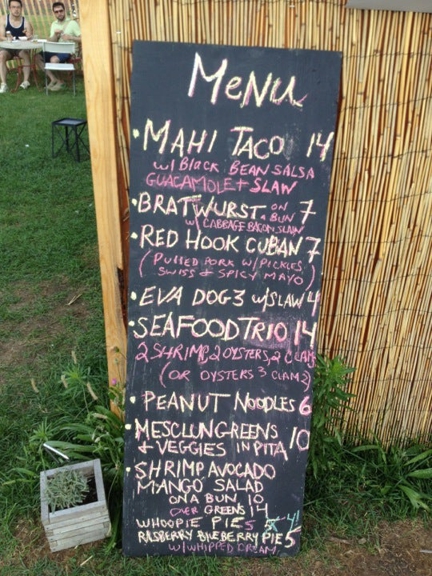 MENU
• MAHI TACO 14
w/ BLACK BEAN SALSA
GUACAMOLE + SLAW
• BRATWURST ON A BUN 7
w/ CABBAGE BACON SLAW
• RED HOOK CUBAN 7
(PULLED PORK W/ PICKLES,
SWISS + SPICY MAYO)
• EVA DOG 3 w/ SLAW 4
• SEAFOOD TRIO 14
2 SHRIMP, 2 OYSTERS, 2 CLAMS
(OR OYSTERS 3 CLAM 3)
• PEANUT NOODLES 6
• MESCLUN GREENS 10
+ VEGGIES IN PITA
• SHRIMP AVOCADO
MANGO SALAD
ON A BUN 10
OVER GREENS 14
WHOOPIE PIES 4
RASPBERRY BLUEBERRY PIE 5
W/ WHIPPED CREAM